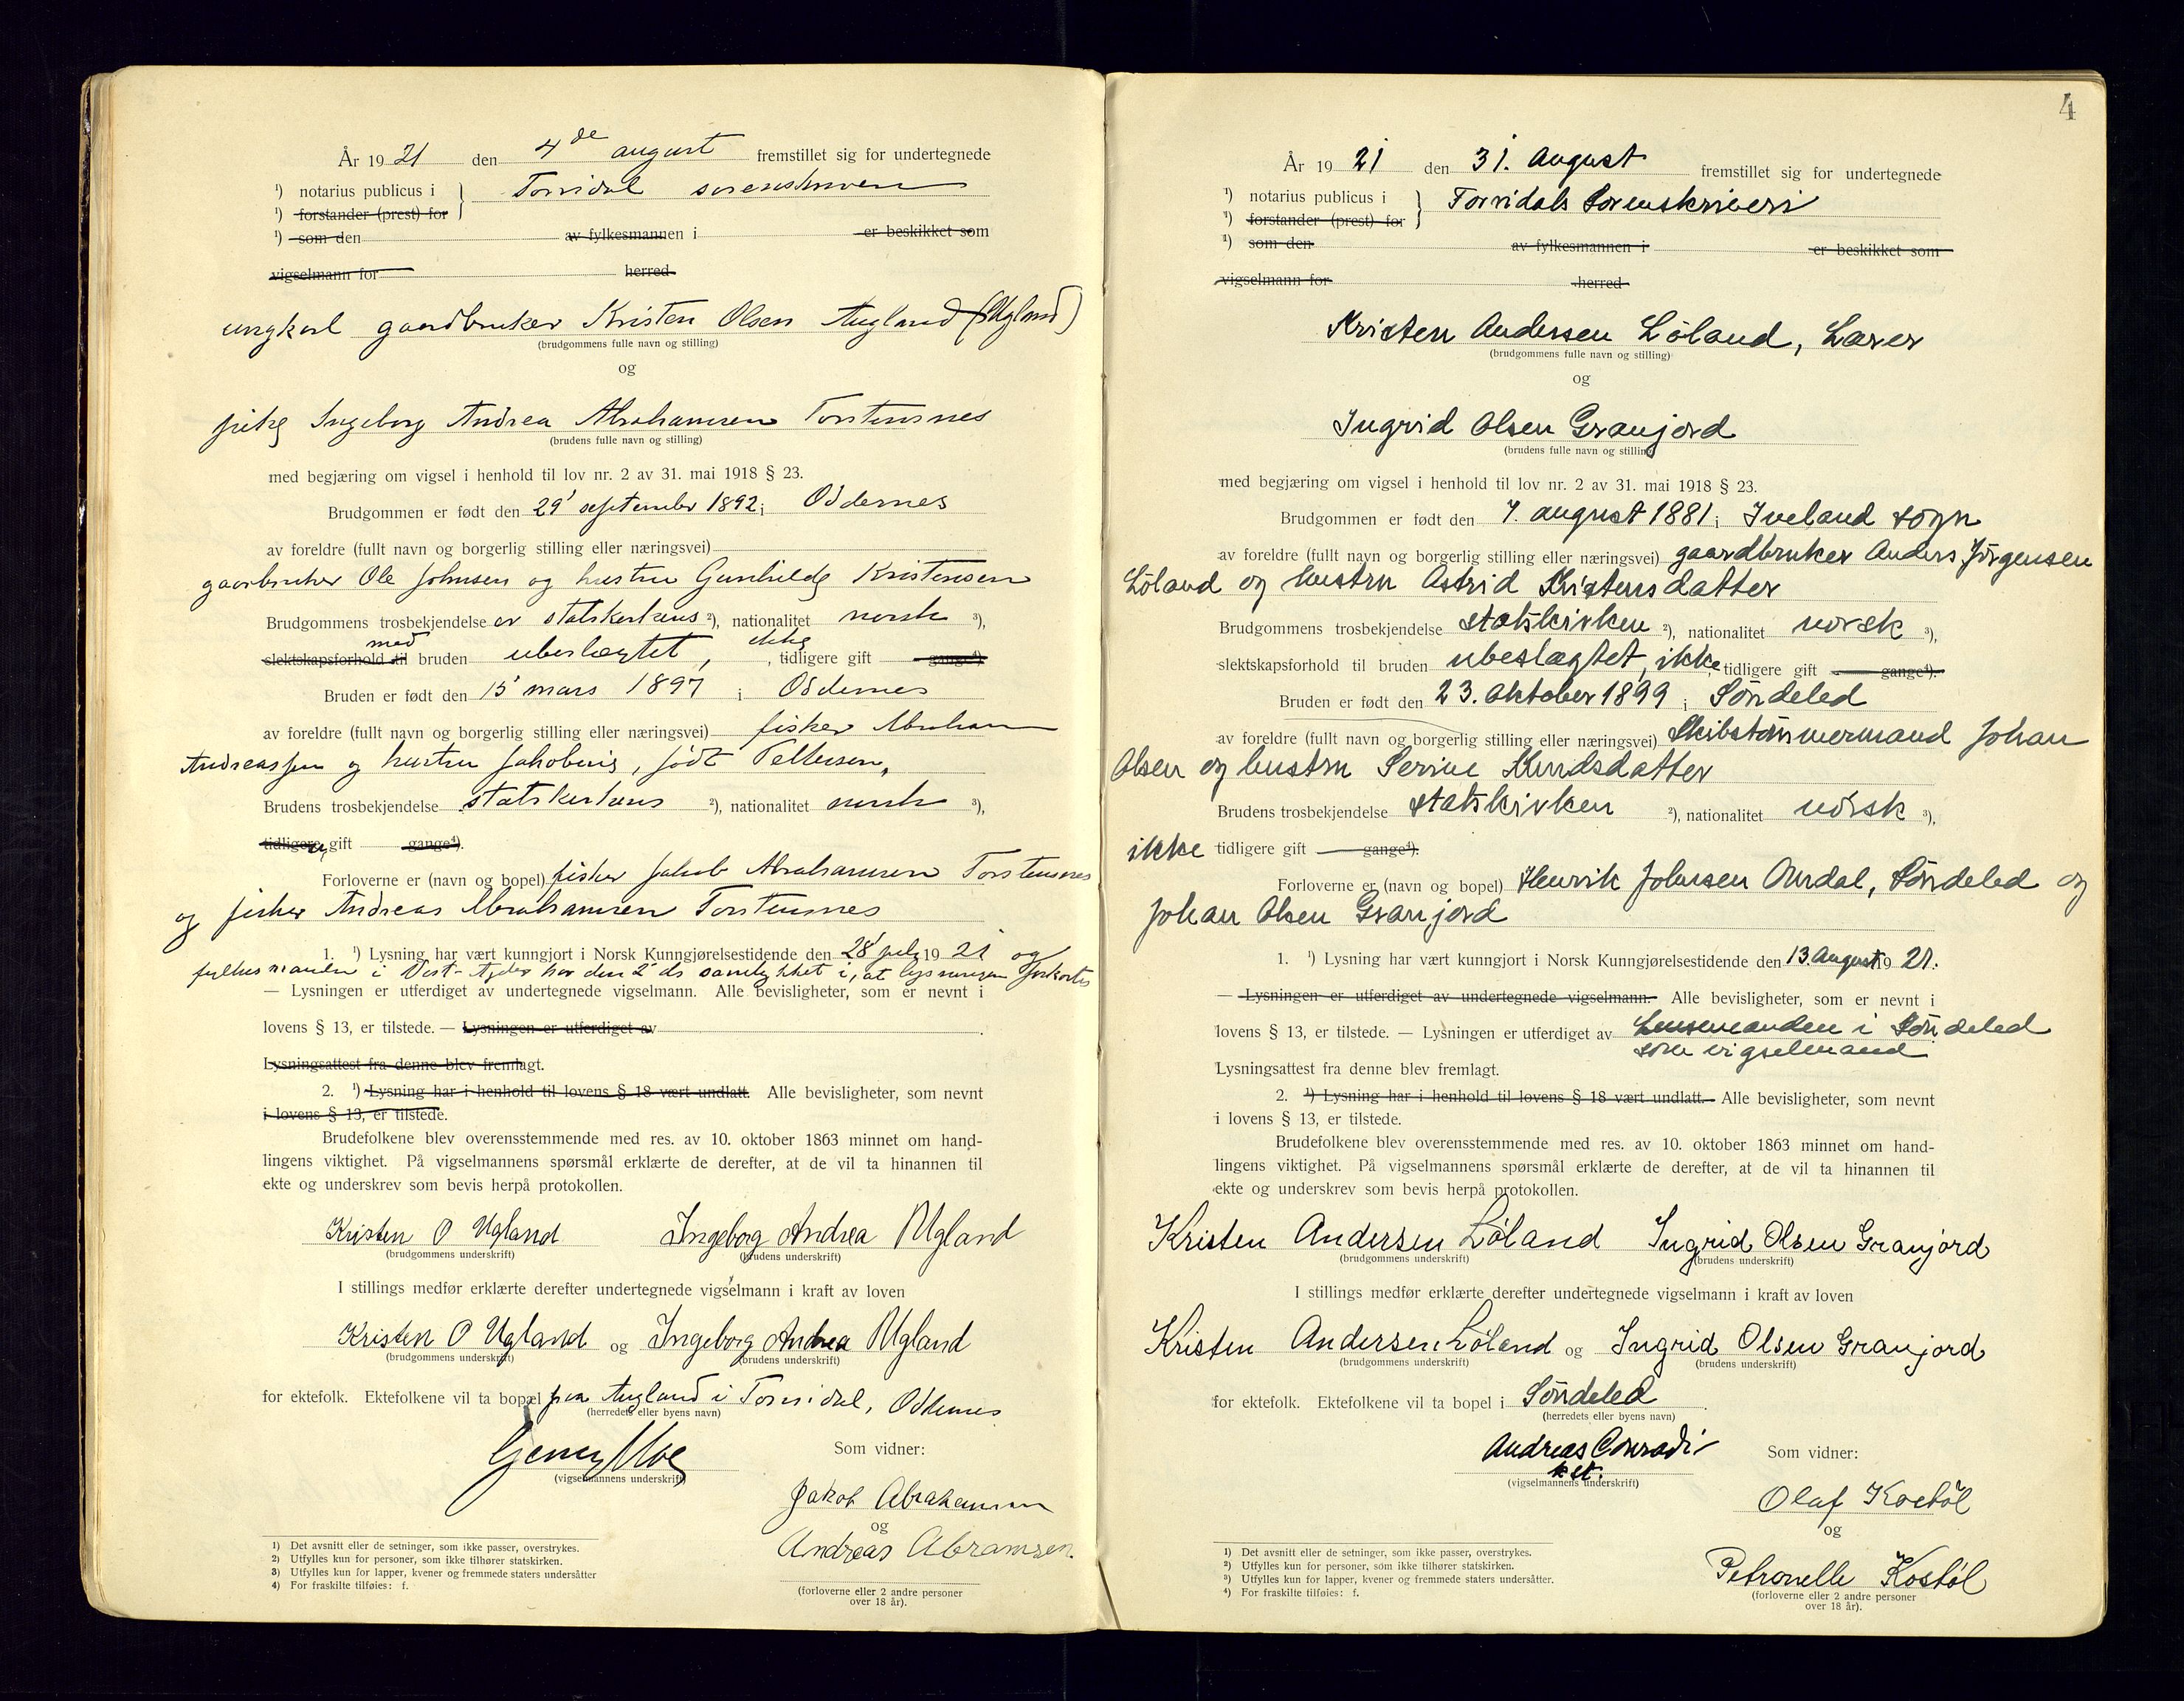 År 1921 den 4de august fremstillet sig for undertegnede
¹) notarius publicus i } Torridal sorenskriveri
¹) forstander (prest) for
¹) som den av fylkesmannen i er beskikket som
vigselmann for herred
ungkarl gaardbruker Kristen Olsen Augland (Ugland)
(brudgommens fulle navn og stilling)
og
pike Ingeborg Andrea Abrahamsen Torstensnes
(brudens fulle navn og stilling)
med begjæring om vigsel i henhold til lov nr. 2 av 31. mai 1918 § 23.
Brudgommen er født den 29' september 1892 i Oddernes
av foreldre (fullt navn og borgerlig stilling eller næringsvei)
gaarbruker Ole Johnsen og hustru Gunhilde Kristensen
Brudgommens trosbekjendelse er statskirkens ²), nationalitet norsk ³),
med ikke
slektskapsforhold til bruden ubeslægtet, , tidligere gift gange⁴)
Bruden er født den 15' mars 1897 i Oddernes
av foreldre (fullt navn og borgerlig stilling eller næringsvei) fisker Abraham
Andreassen og hustru Jakobine, født Tellefsen,
Brudens trosbekjendelse statskirkens ²), nationalitet norsk ³),
tidligere gift gange⁴).
Forloverne er (navn og bopel) fisker Jakob Abrahamsen Torstensnes
og fisker Andreas Abrahamsen Torstensnes
1. ¹) Lysning har vært kunngjort i Norsk Kunngjørelsestidende den 28' july 1921 og
fylkesmanden i Vest-Agder har den 2' ds samtykket i, at lysningen forkortes
— Lysningen er utferdiget av undertegnede vigselmann. Alle bevisligheter, som er nevnt i
lovens § 13, er tilstede. — Lysningen er utferdiget av .
Lysningsattest fra denne blev fremlagt.
2. ¹) Lysning har i henhold til lovens § 18 vært undlatt. Alle bevisligheter, som nevnt
i lovens § 13, er tilstede.
Brudefolkene blev overensstemmende med res. av 10. oktober 1863 minnet om hand-
lingens viktighet. På vigselmannens spørsmål erklærte de derefter, at de vil ta hinannen til
ekte og underskrev som bevis herpå protokollen.
Kristen O Ugland Ingeborg Andrea Ugland
(brudgommens underskrift) (brudens underskrift)
I stillings medfør erklærte derefter undertegnede vigselmann i kraft av loven
Kristen O Ugland og Ingeborg Andrea Ugland
(brudgommens underskrift) (brudens underskrift)
for ektefolk. Ektefolkene vil ta bopæl paa Augland i Torridal, Oddernes
(herredets eller byens navn)
Moe Som vidner:
(vigselmannens underskrift)
Jakob Abrahamsen
og
Andreas Abramsen.
(forloverne eller 2 andre personer
over 18 år).
1) Det avsnitt eller de setninger, som ikke passer, overstrykes.
2) Utfylles kun for personer, som ikke tilhører statskirken.
3) Utfylles kun for lapper, kvener og fremmede staters undersåtter
4) For fraskilte tilføies: f.
4
År 1921 den 31. August fremstillet sig for undertegnede
¹) notarius publicus i } Torridals Sorenskriveri
¹) forstander (prest) for
¹) som den av fylkesmannen i er beskikket som
vigselmann for herred
Kristen Andersen Löland, Lærer
(brudgommens fulle navn og stilling)
og
Ingrid Olsen Granjord
(brudens fulle navn og stilling)
med begjæring om vigsel i henhold til lov nr. 2 av 31. mai 1918 § 23.
Brudgommen er født den 7. august 1881 i Iveland sogn
av foreldre (fullt navn og borgerlig stilling eller næringsvei) gaardbruker Anders Jörgensen
Löland og hustru Astrid Kristensdatter
Brudgommens trosbekjendelse statskirken ²), nationalitet norsk ³),
slektskapsforhold til bruden ubeslægtet, ikke tidligere gift gange⁴).
Bruden er født den 23. Oktober 1899 i Söndeled
av foreldre (fullt navn og borgerlig stilling eller næringsvei) Skibstömmermand Johan
Olsen og hustru Serine Knudsdatter
Brudens trosbekjendelse statskirken ²), nationalitet norsk ³),
ikke tidligere gift gange⁴).
Forloverne er (navn og bopel) Henrik Johnsen Omdal, Söndeled og
Johan Olsen Granjord
1. ¹) Lysning har vært kunngjort i Norsk Kunngjørelsestidende den 13. August 1921.
— Lysningen er utferdiget av undertegnede vigselmann. Alle bevisligheter, som er nevnt i
lovens § 13, er tilstede. — Lysningen er utferdiget av Lensmanden i Söndeled
som vigselmand
Lysningsattest fra denne blev fremlagt.
2. ¹) Lysning har i henhold til lovens § 18 vært undlatt. Alle bevisligheter, som nevnt
i lovens § 13, er tilstede.
Brudefolkene blev overensstemmende med res. av 10. oktober 1863 minnet om hand-
lingens viktighet. På vigselmannens spørsmål erklærte de derefter, at de vil ta hinannen til
ekte og underskrev som bevis herpå protokollen.
Kristen Andersen Løland Ingrid Olsen Granjord
(brudgommens underskrift) (brudens underskrift)
I stillings medfør erklærte derefter undertegnede vigselmann i kraft av loven
Kristen Andersen Løland og Ingrid Olsen Granjord
(brudgommens underskrift) (brudens underskrift)
for ektefolk. Ektefolkene vil ta bopel i Söndeled .
(herredets eller byens navn)
Andreas Conradi Som vidner:
kst.
(vigselmannens underskrift)
Olaf Kostöl
og
Petronelle Kostøl
(forloverne eller 2 andre personer
over 18 år).
¹) Det avsnitt eller de setninger, som ikke passer, overstrykes.
²) Utfylles kun for personer, som ikke tilhører statskirken.
³) Utfylles kun for lapper, kvener og fremmede staters undersåtter.
⁴) For fraskilte tilføies: f.